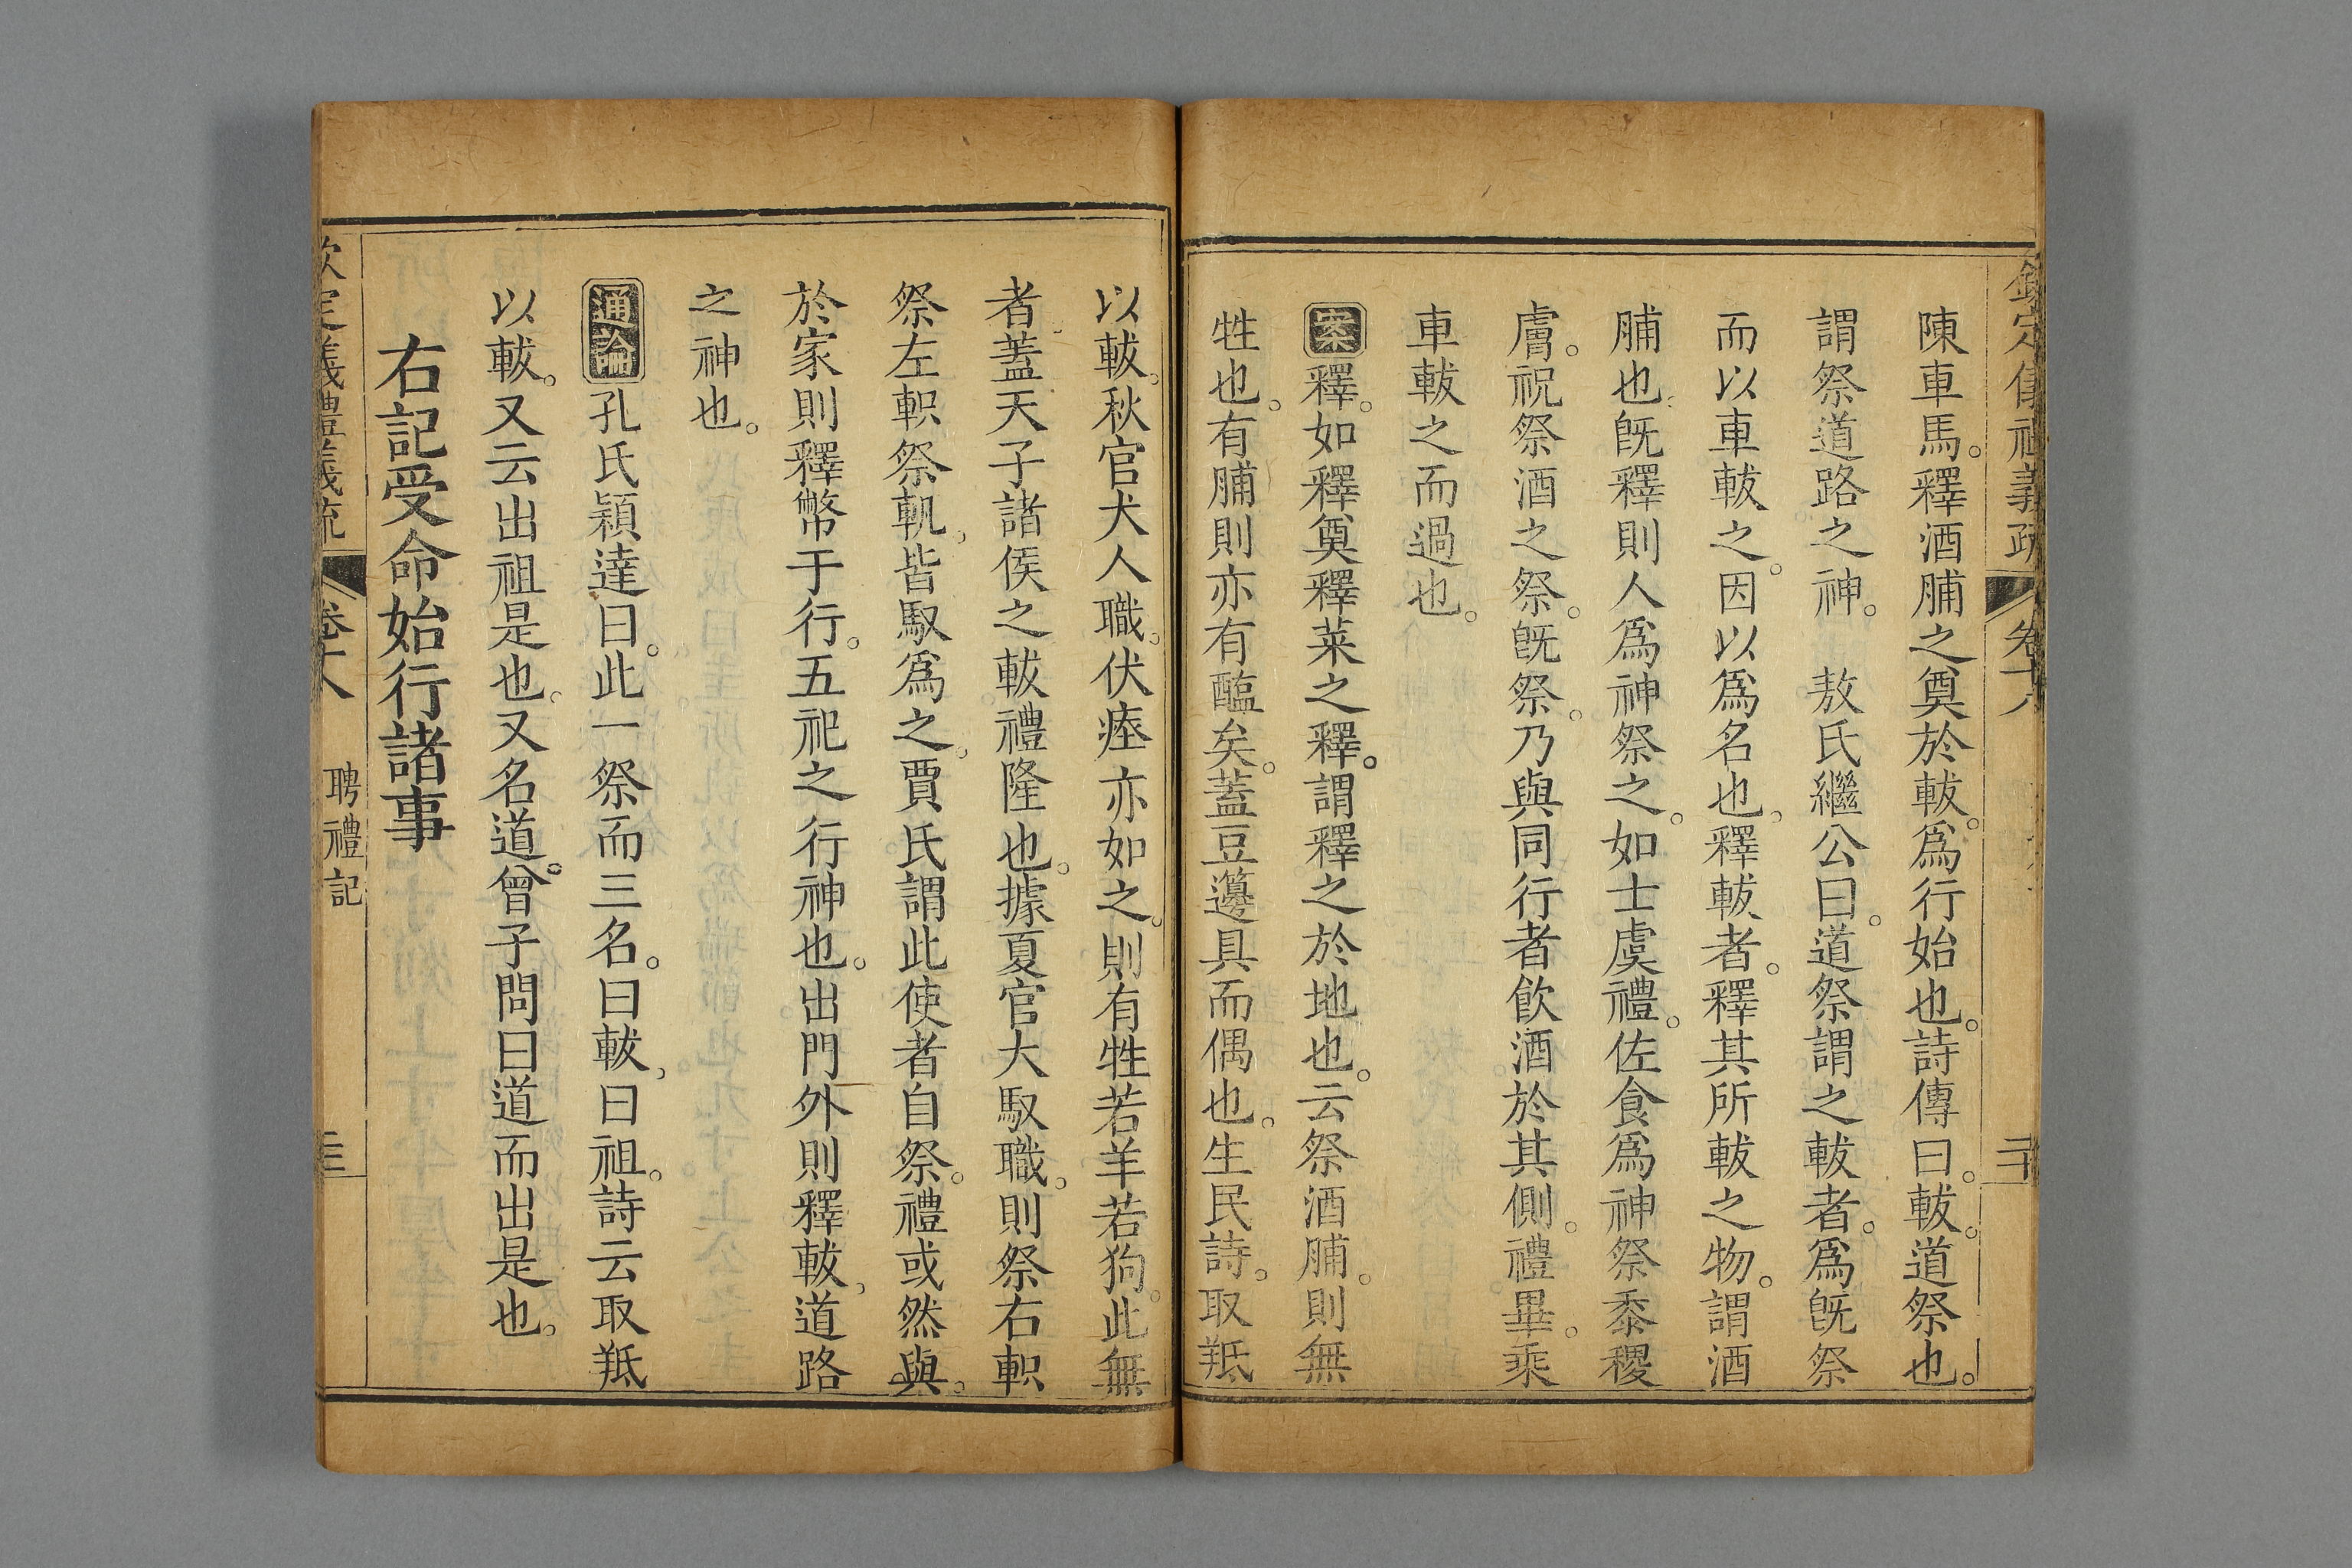 欽定儀禮義疏 卷十八 二十
陳車馬。釋酒脯之奠於軷。爲行始也。詩傳曰。軷。道祭也。
謂祭道路之神。 敖氏繼公曰。道祭謂之軷者。爲旣祭
而以車軷之。因以爲名也。釋軷者。釋其所軷之物。謂酒
脯也。旣釋則人爲神祭之。如士虞禮。佐食爲神祭黍稷
膚。祝祭酒之祭。旣祭。乃與同行者飮酒於其側。禮畢。乘
車軷之而過也。
案釋。如釋奠釋菜之釋。謂釋之於地也。云祭酒脯。則無
牲也。有脯則亦有醢矣。蓋豆籩具而偶也。生民詩。取羝
以軷。秋官犬人職。伏瘞亦如之。則有牲若羊若狗。此無
者。蓋天子諸侯之軷禮隆也。據夏官大馭職。則祭右軹
祭左軹祭軓。皆馭爲之。賈氏謂此使者自祭。禮或然與。
於家則釋幣于行。五祀之行神也。出門外則釋軷。道路
之神也。
通論孔氏穎達曰。此一祭而三名。曰軷。曰祖。詩云取羝
以軷。又云出祖是也。又名道。曾子問曰道而出是也。
右記受命始行諸事
欽定儀禮義疏 卷十八 聘禮記